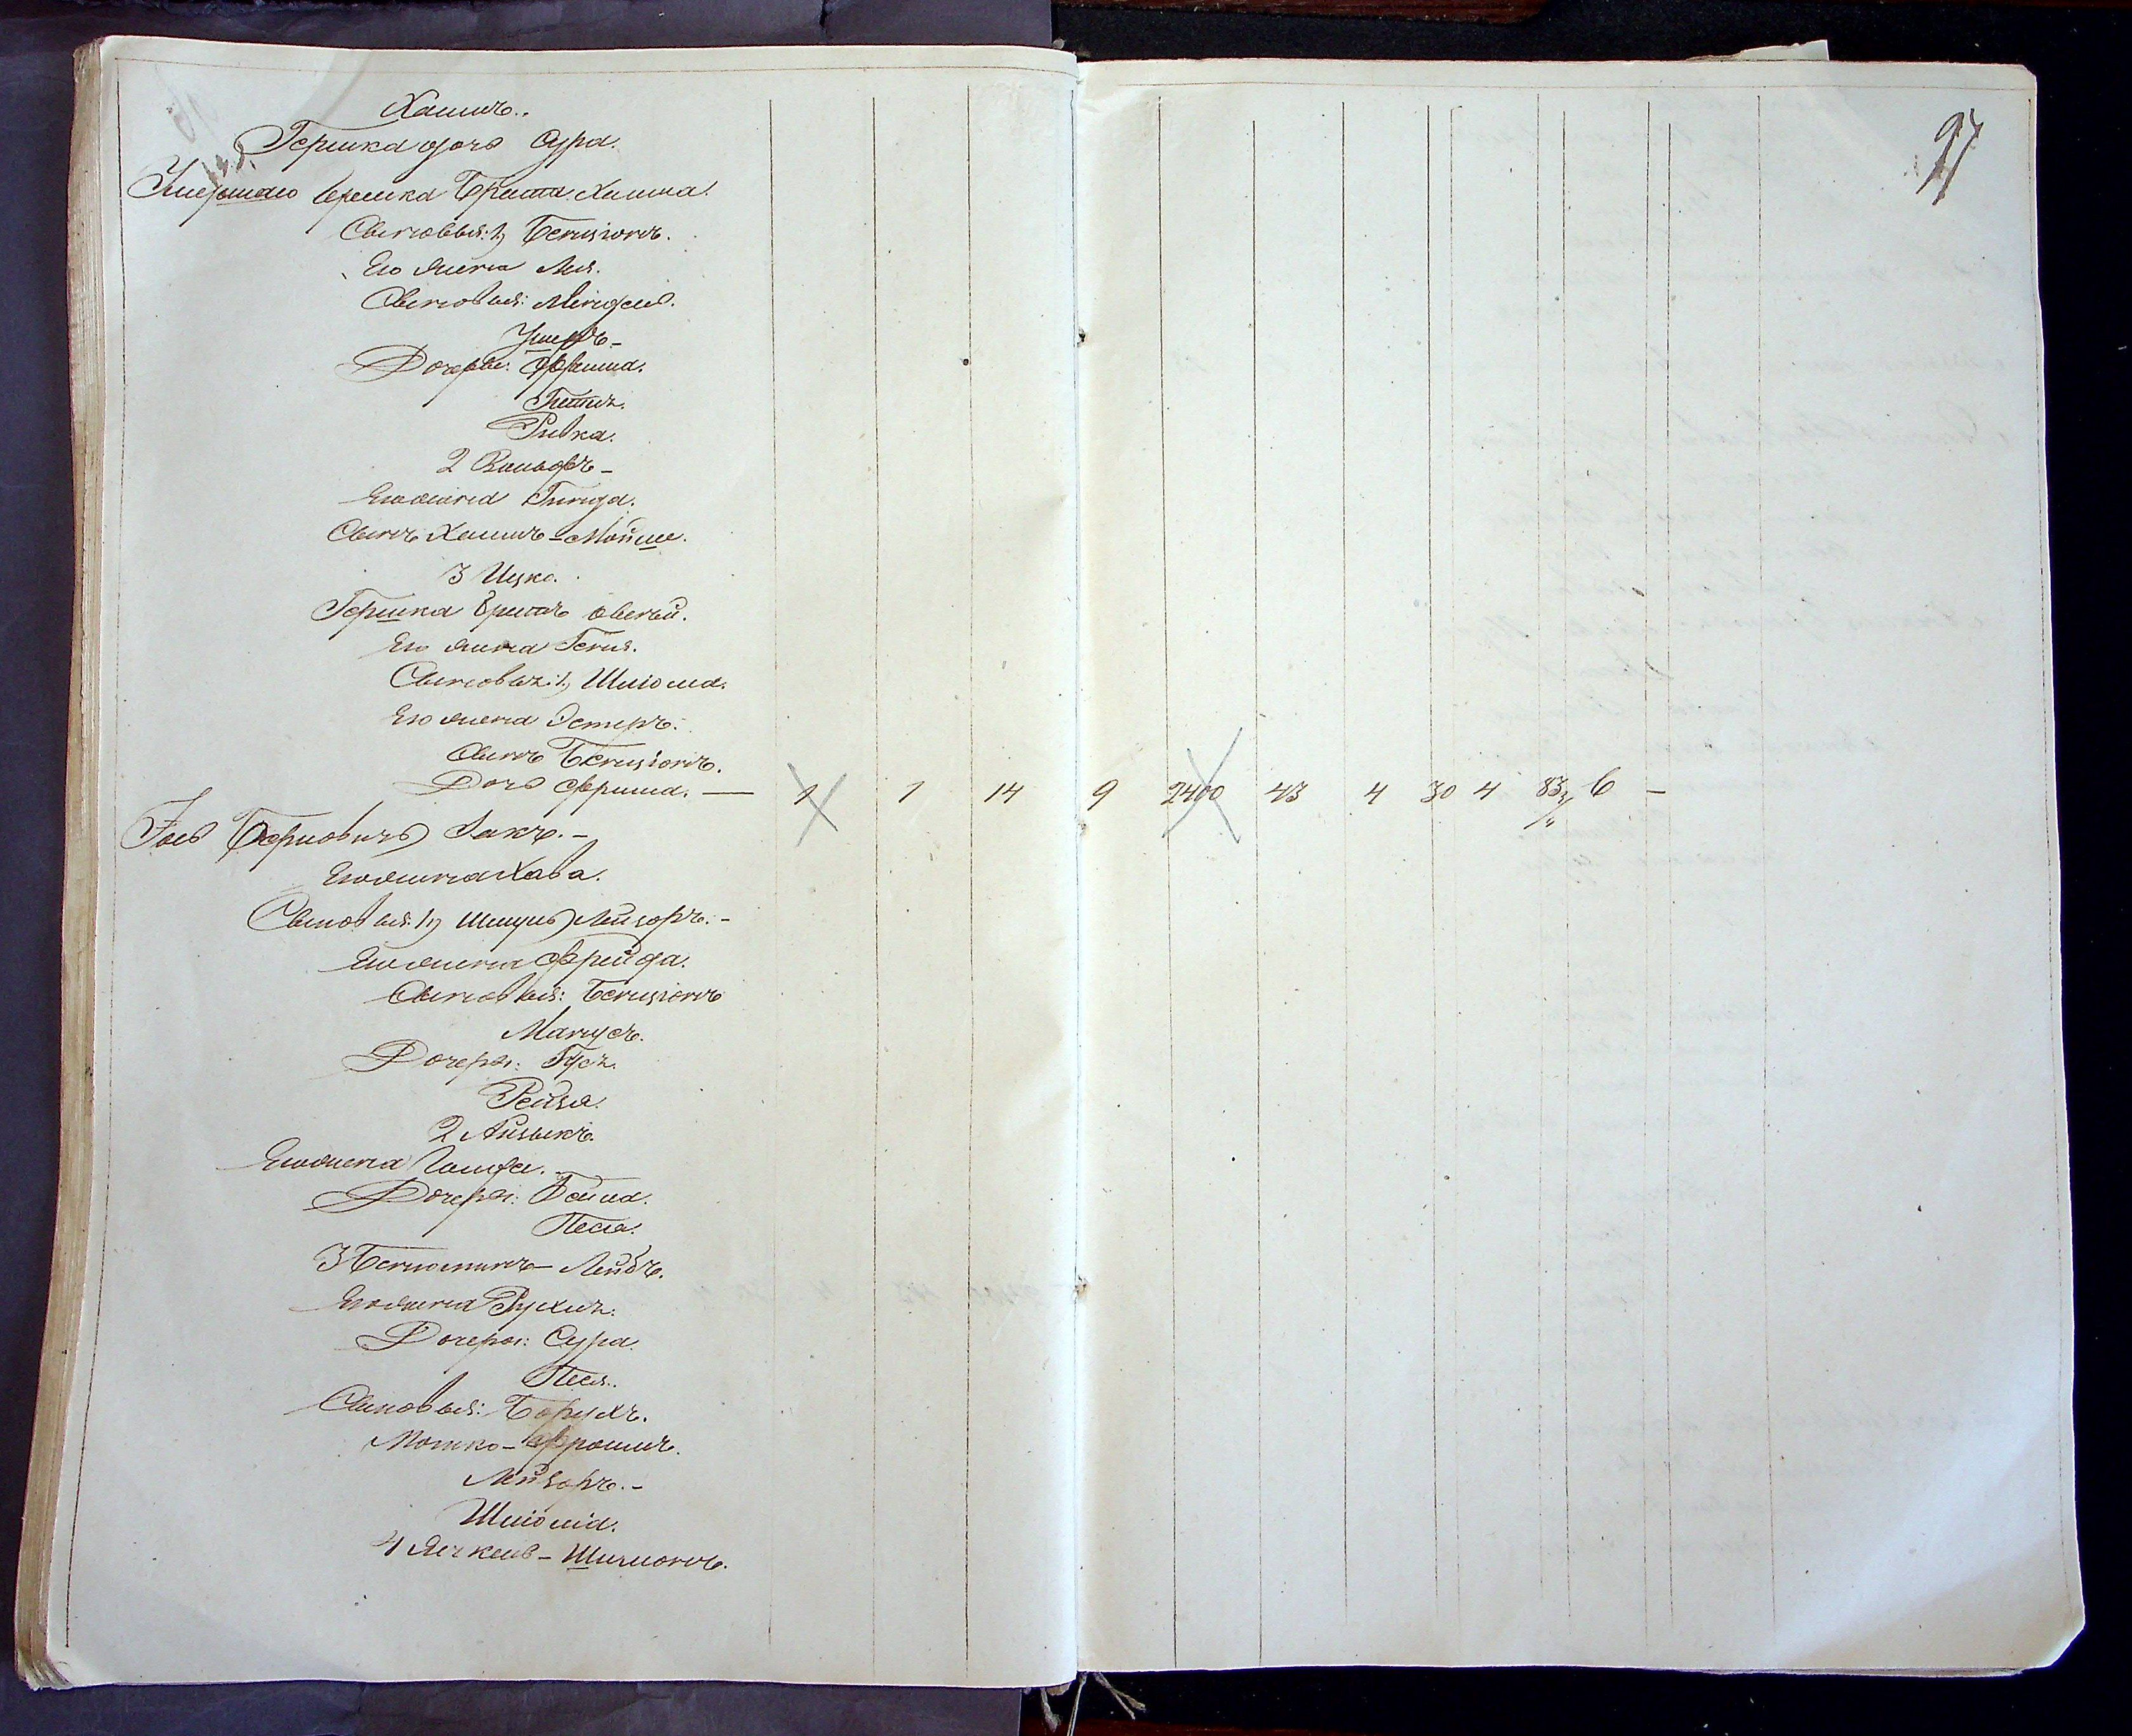 Хаимъ.
Гершка дочь Сура.
Умершаго Гершка братъ Хаима.
Сыновья: 1, Бенціонъ.
Его жена Лея.
Сыновья: Мендель.
Ушеръ
Дочери: Фрима.
Гитля.
Ривка.
2 Вольфъ
Его жена Гинда.
Сынъ Хаимъ-Мойше.
3 Ицко.
Гершка братъ
Его жена Геня.
Сыновья: 1, Шлюма.
Его жена Эстеръ.
Сынъ Бенціонъ.
Дочь Фрима. — 1 1 14 9 2400 43 4 30 4 83 6 —
97
Іось Берковичъ Закъ.
Его жена Хава.
Сыновья: 1, Лейзоръ.
Его жена Фрейда.
Сыновья: Бенціонъ
Манусъ.
Дочери: Гуся.
Рейза.
2 Айзыкъ.
Его жена
Дочери: Бейла.
Песя.
3 Беніоминъ-Лейбъ.
Его жена Рухля.
Дочери: Сура.
Песя.
Сыновья: Борухъ.
Мошко-Фроимъ.
Лейзоръ.
Шліома.
4 Янкель-Шлиомонъ.